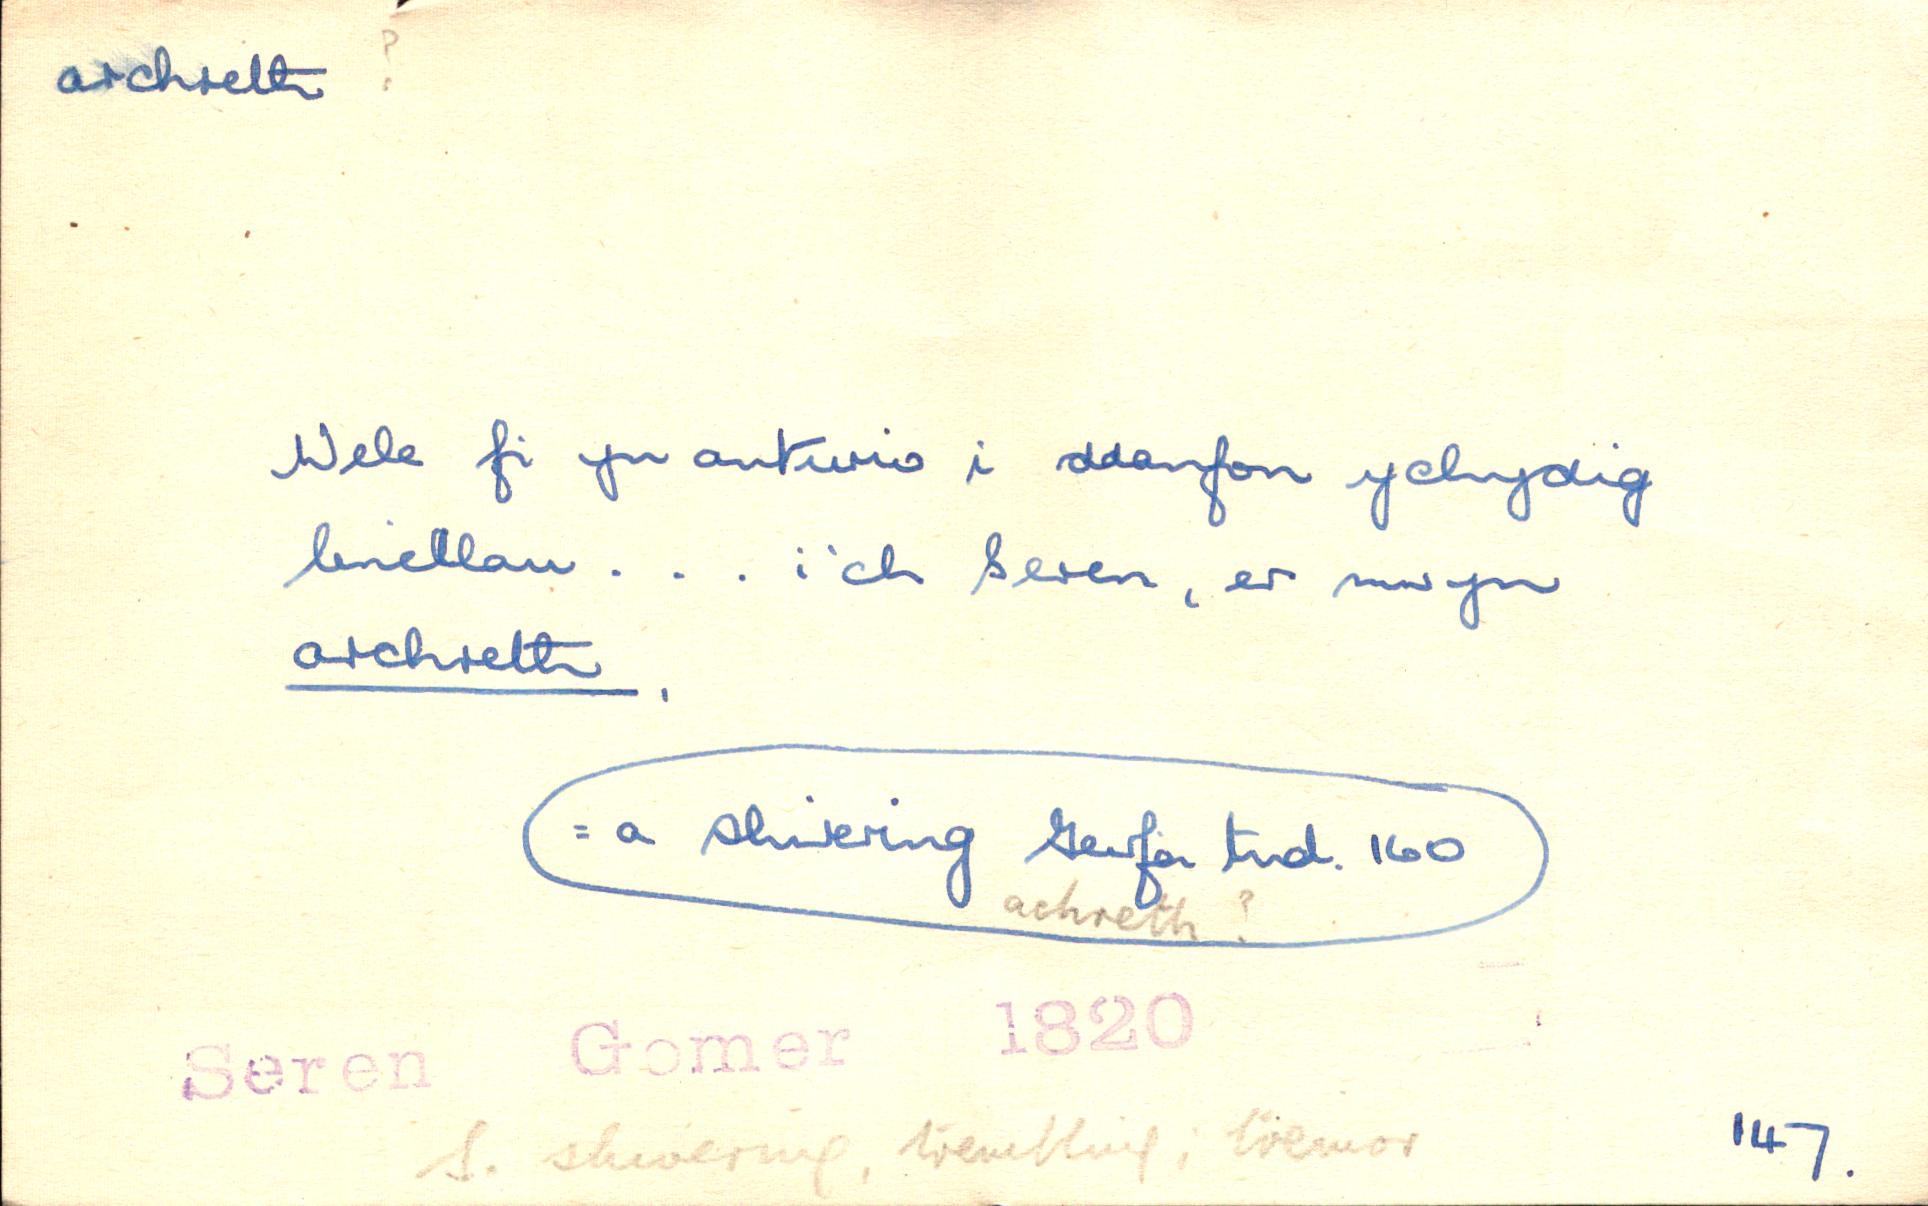 archreth ?
Wele fi yn anturio i ddanfon ychydig
linellau . . . i'ch Seren, er mwyn
archreth.
= a shivering Geirfa Tud. 160
achreth ?
Seren Gomer 1820
S. shivering, trembling; tremor
147.